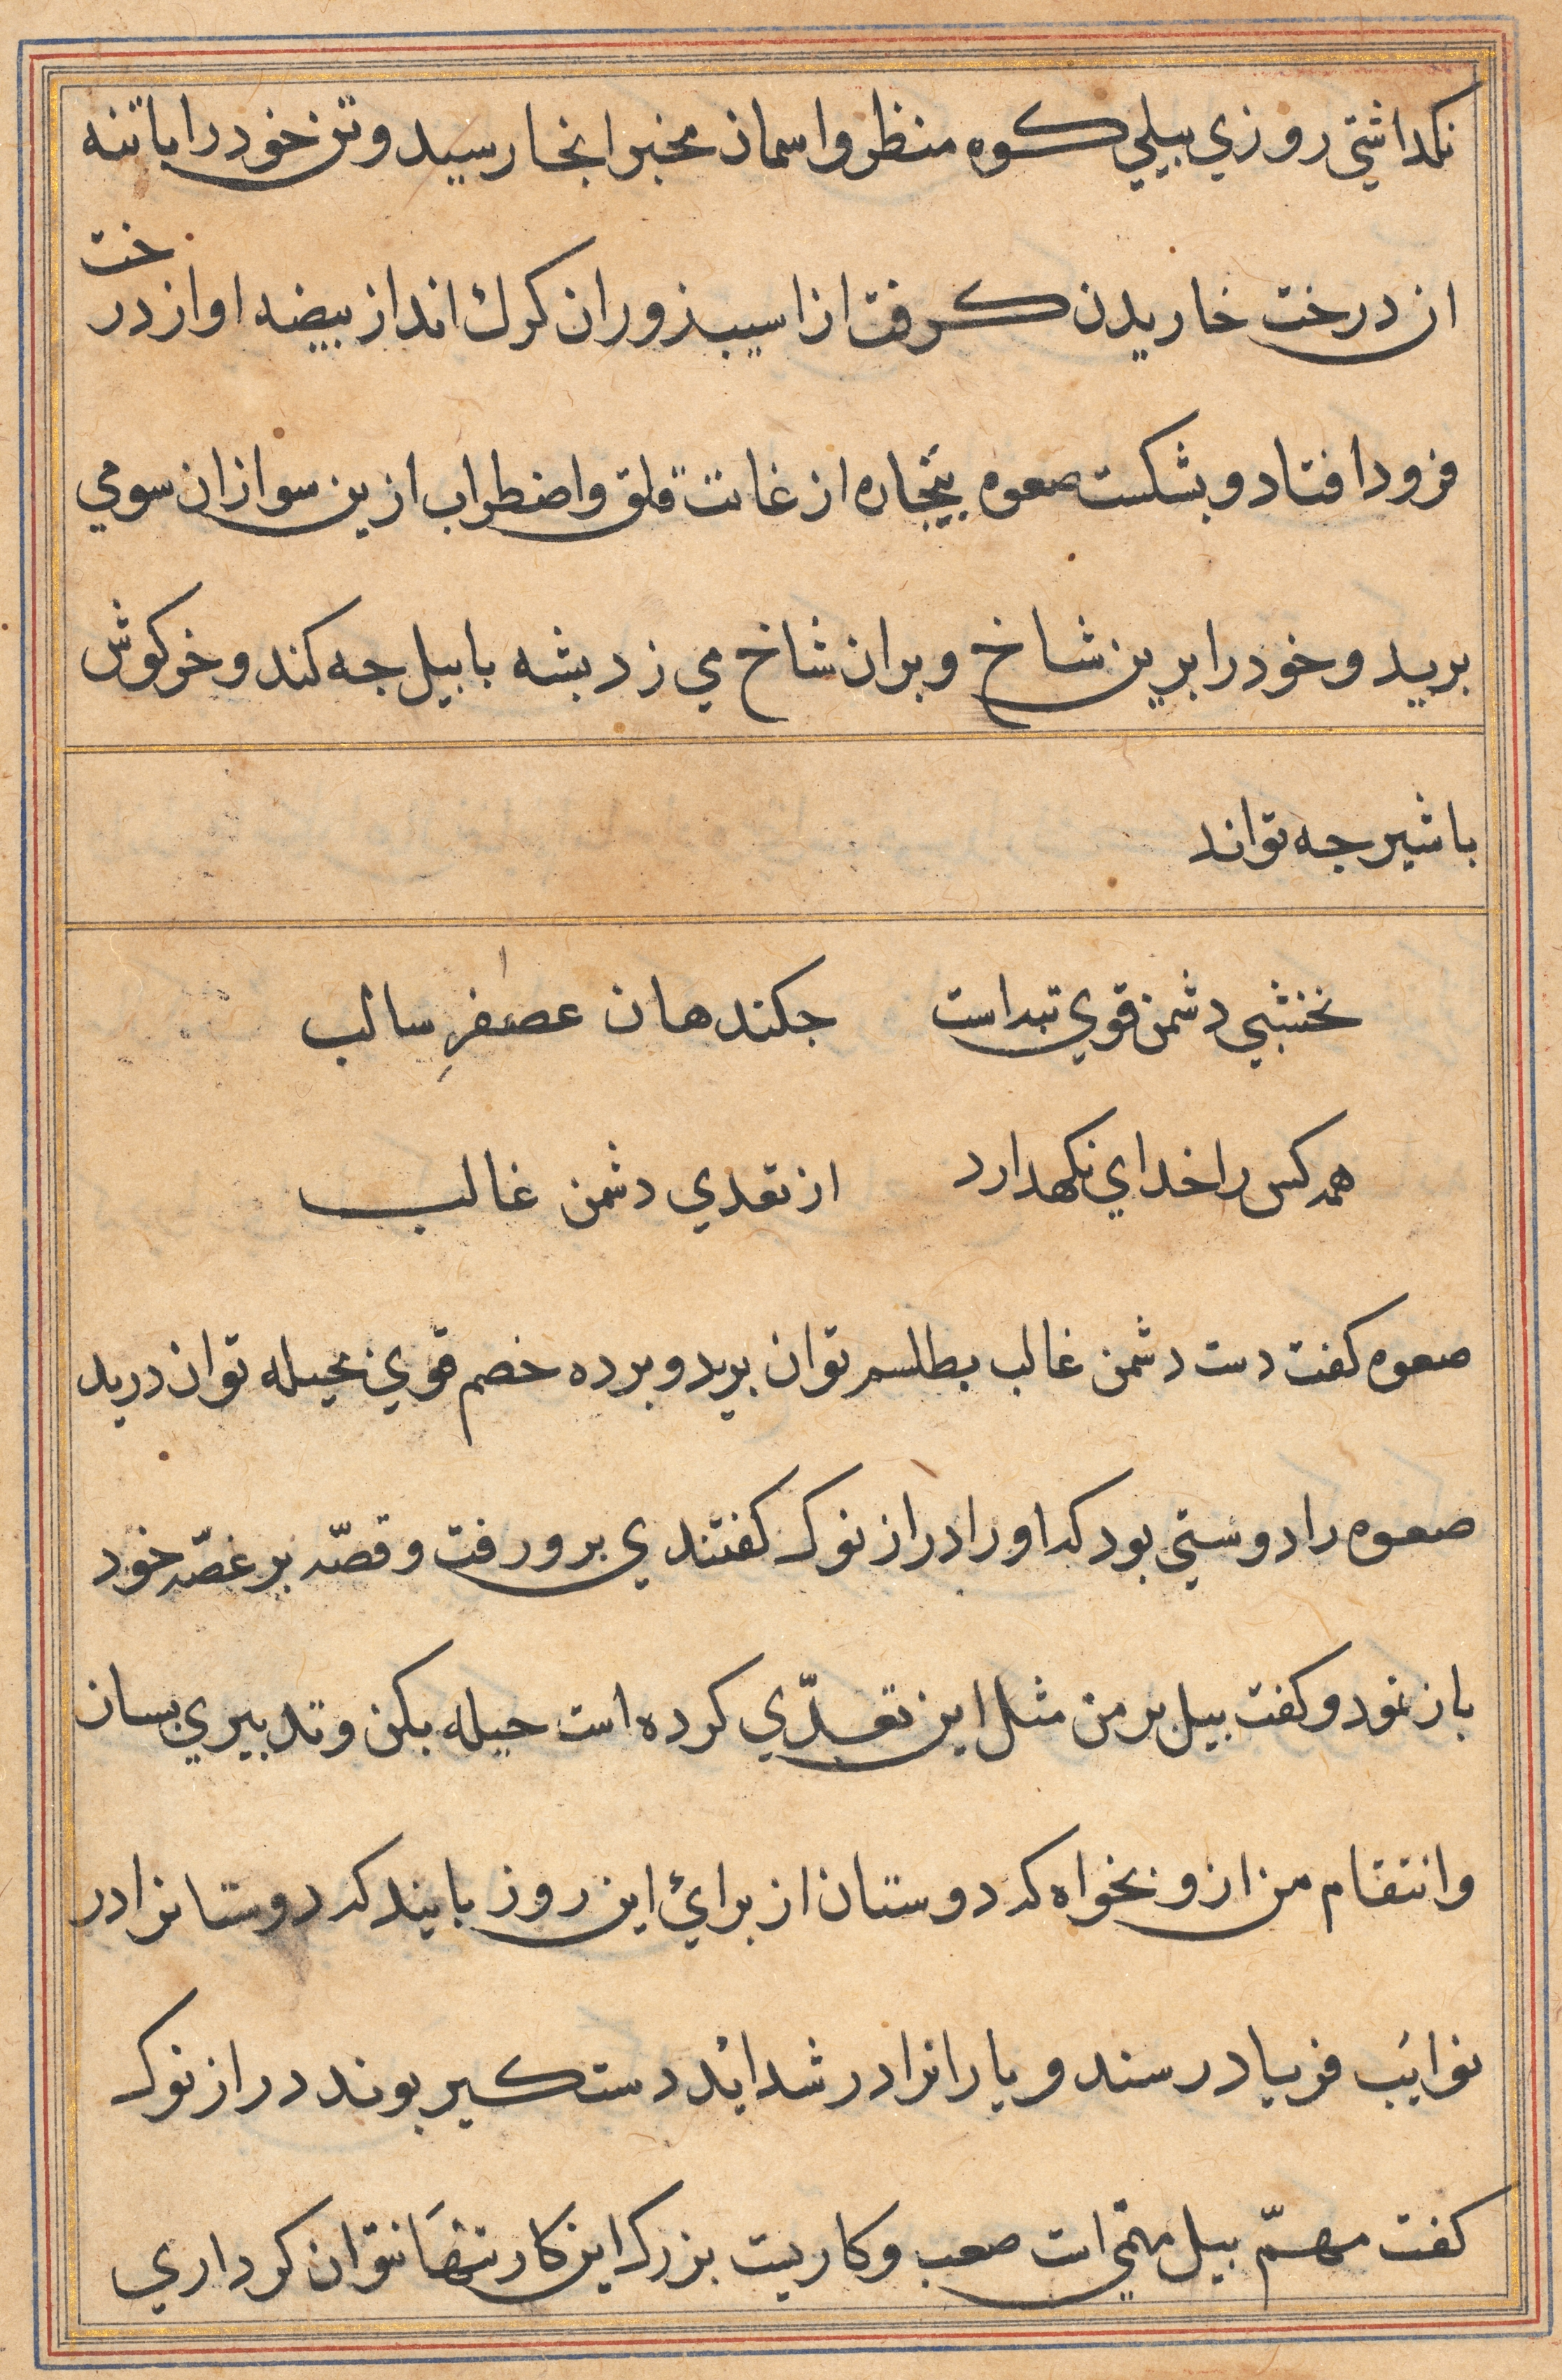 نکداشتي روزي بيلي کوه منظر واسمان مخبر انجا رسيد وتن خود را باتنه
ان درخت خاريدن کرفت از اسيب زوران کرك انداز بيضه او از در خت
فرود افتاد وبشکست صعوه بيچاره از غايت قلق واضطراب ازين سو ازان سو مي
بريد وخود را برين شاخ وبران شاخ مي زد بشه با بيل جه کند وخرکوش
با شير جه تواند
نخشبي دشمن قوي تبداست جکند هان عصفر سالب
همه کس را خداي نکهدارد از تعدي دشمن غالب
صعوه کفت دست دشمن غالب بطلسم توان بريد وبرده خصم قوي بحيله توان دريد
صعوه را دوستي بود که او را دراز نوک کفتندي برو رفت وقصّه بر غصّه خود
باز نمود وکفت بيل بر من مثل اين تعدّي کرده است حيله بکن وتدبيري بسان
وانتقام من ازو بخواه که دوستان از براي اين روز بايند که دوستانرا در
نوايب فرياد رسند ويارانرا در شدايد دستکير بوند دراز نوک
کفت مهمّ بيل مهمّي است صعب وکاريست بزرک اين کار تنهَا نتوان کرد اري